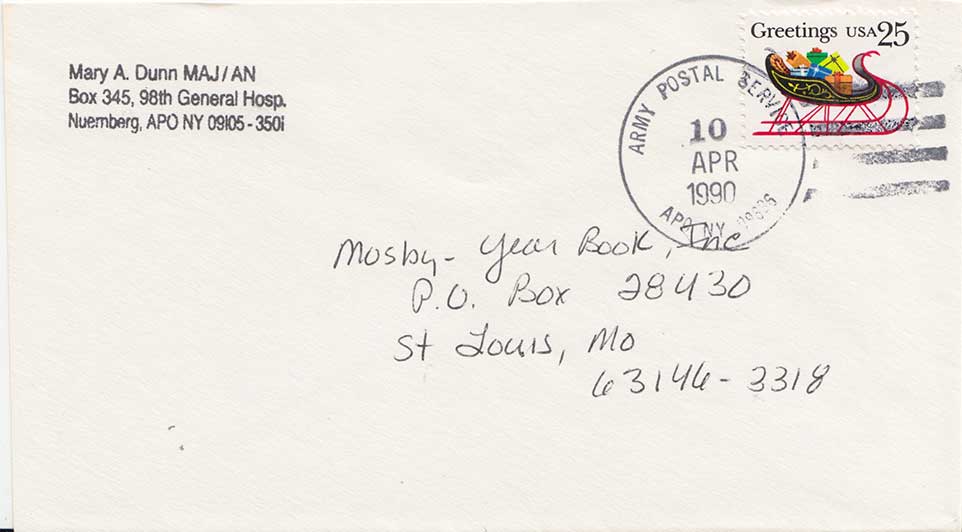 Mary A. Dunn MAJ/AN
Box 345, 98th General Hosp.
Nuernberg, APO NY 09105-3501
Greetings USA 25
ARMY POSTAL SERVICE
10
APR
1990
APO NY
Mosby-Year Book, Inc
P.O. Box 28430
St Louis, Mo
63146-3318